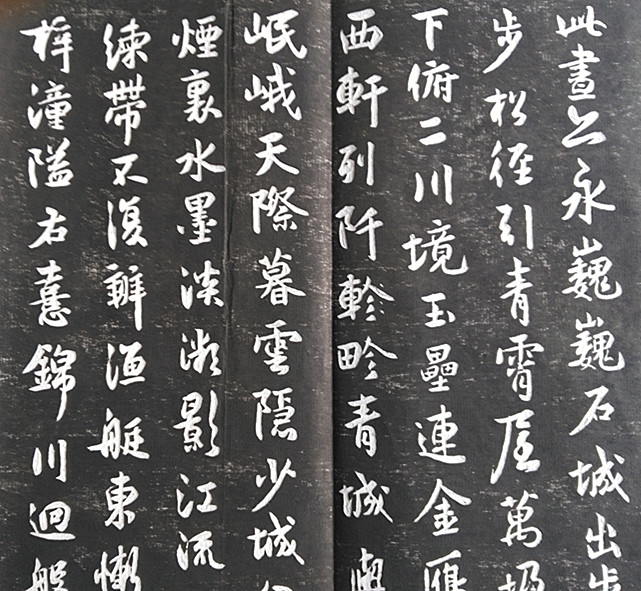 此晝公永巍巍石城出
步松徑引青霄尾萬
下俯二川境玉壘連金雁
西軒列阡軫畛青城
岷峨天際暮雲隱少城
煙裏水墨淡漪影江流
練帶不復辨漁艇東慚
梓潼隘右憙錦川迴